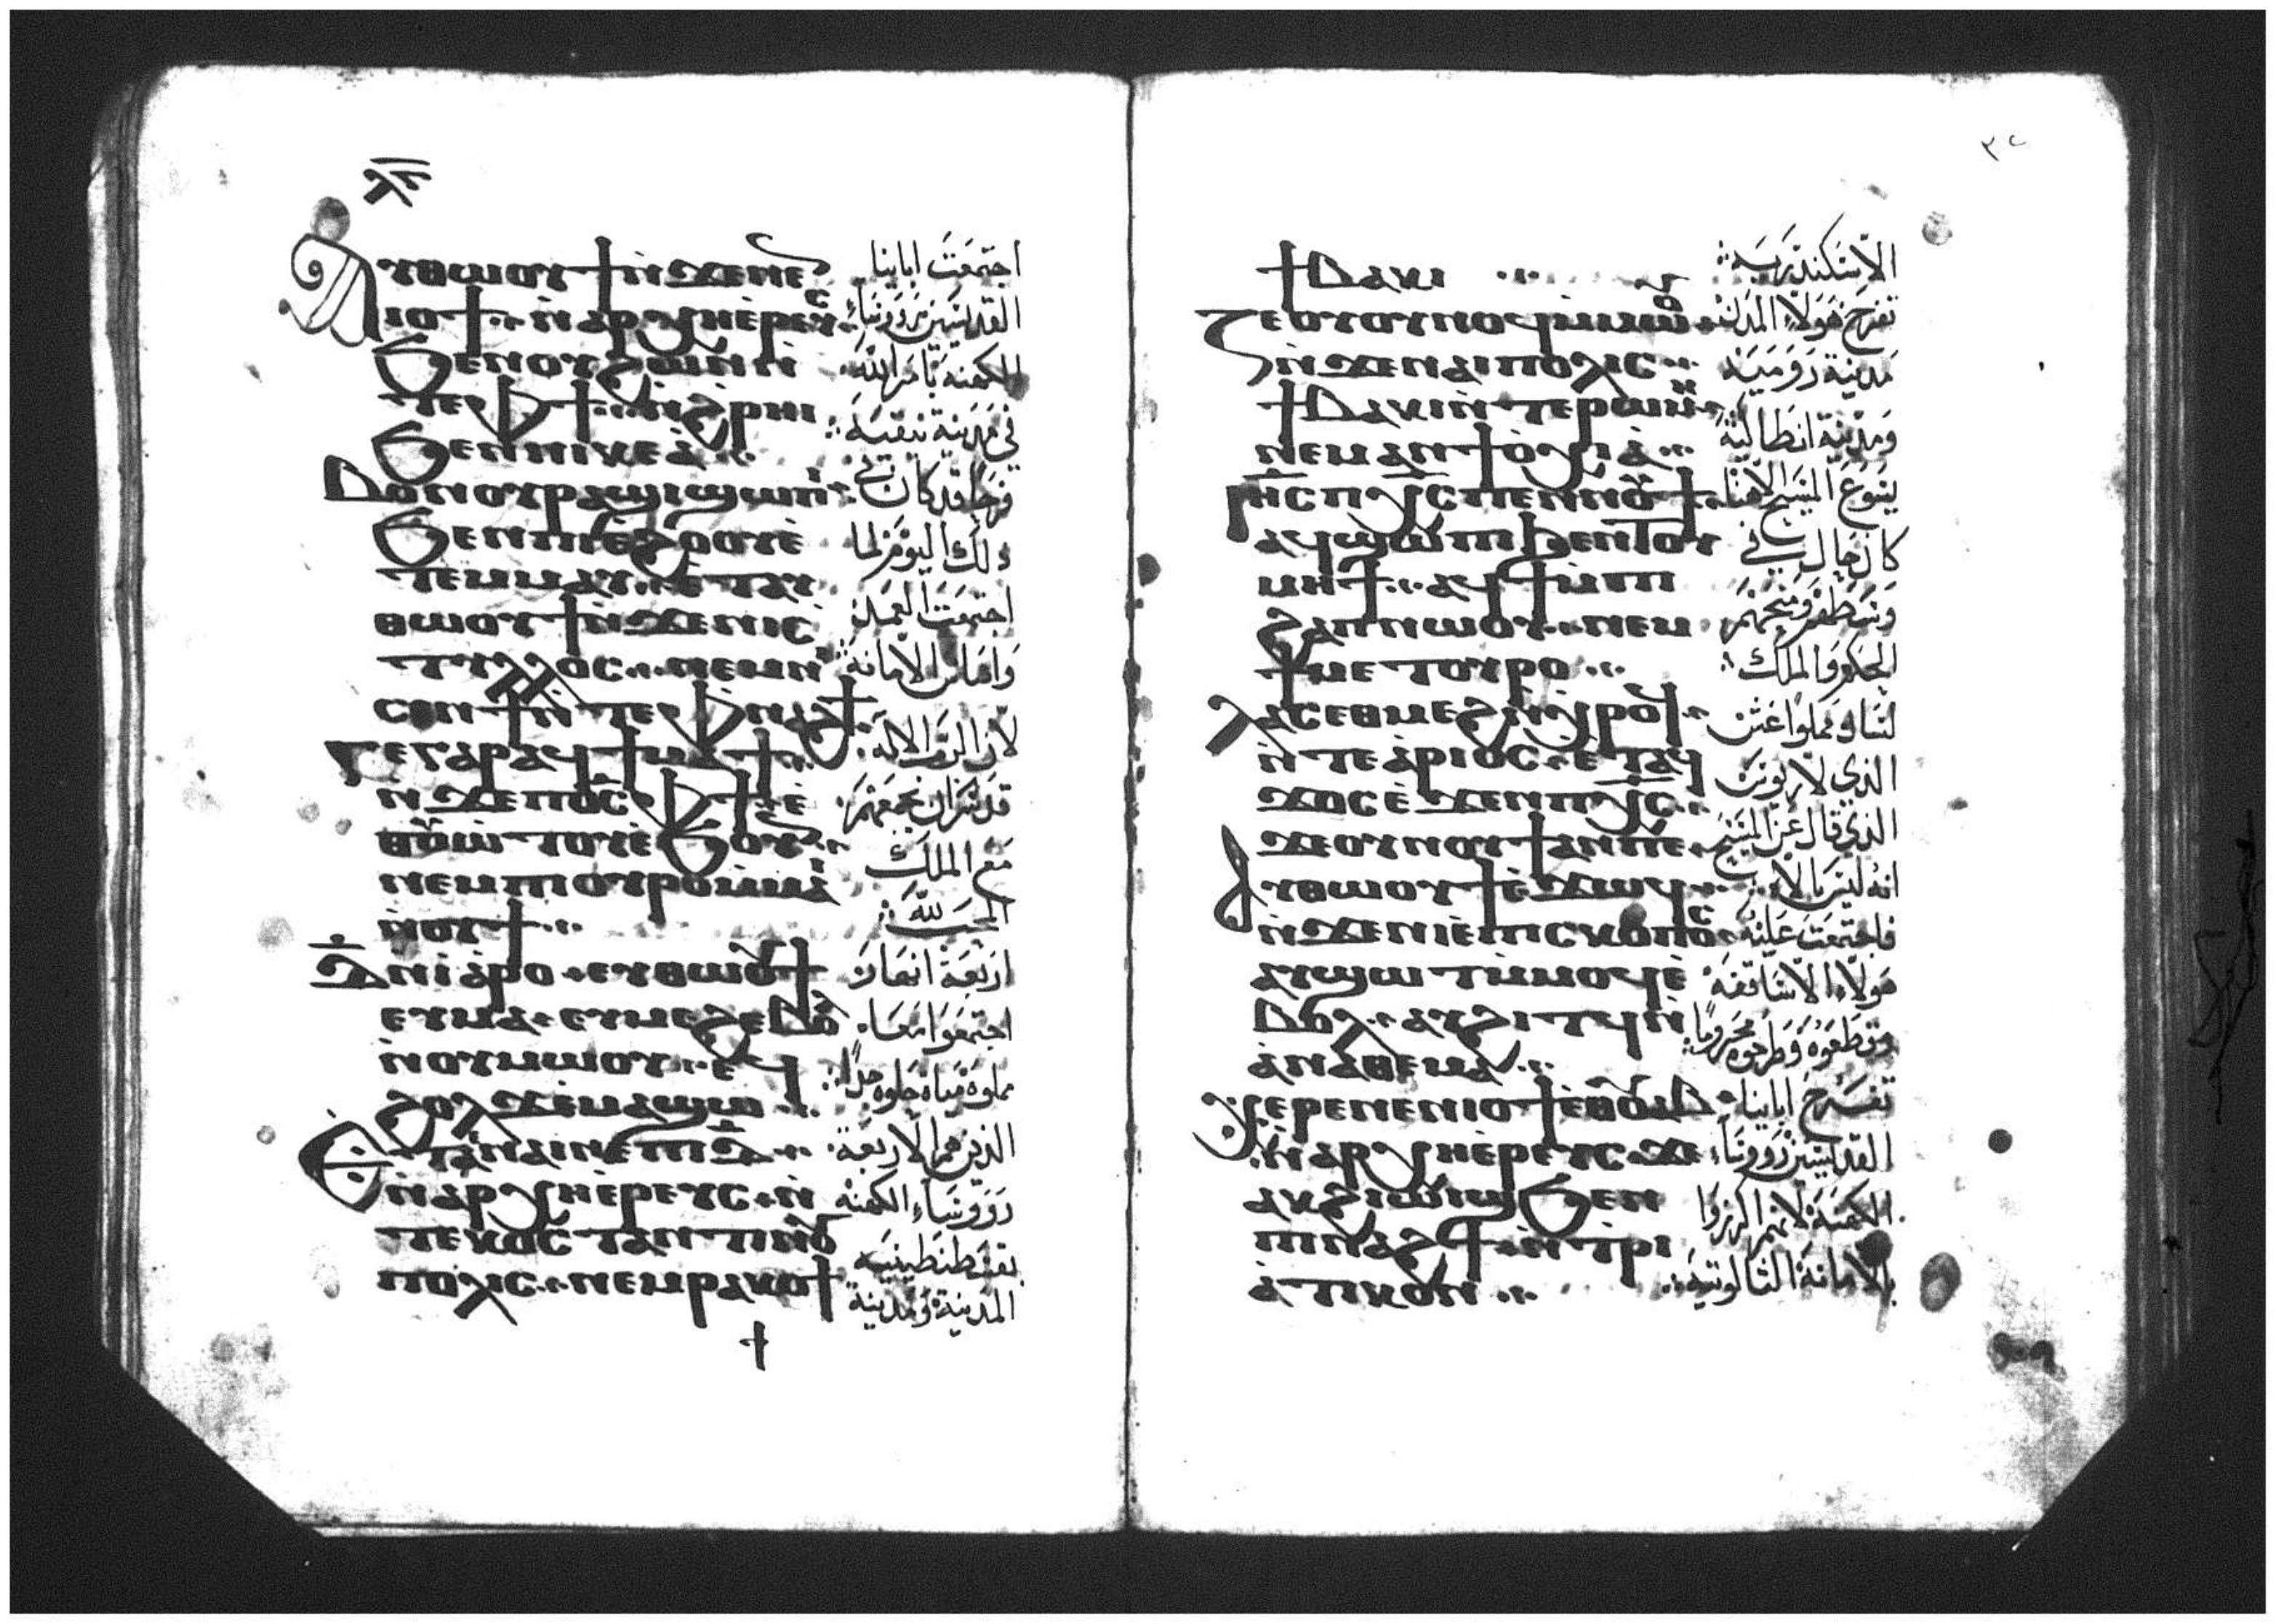 ⲗⲅ
Ⲁⲩⲑⲱⲟⲩϯ ⲛ̀ϫⲉⲛⲉ
ⲓⲟϯ ⲛ̀ⲁⲣⲭⲏⲉ̀ⲣⲉⲩⲥ
ϧⲉⲛⲟⲩϩⲱⲛ ⲛ̀
ⲧⲉⲫϯ ⲛ̀ϩⲣⲏⲓ
ϧⲉⲛⲛⲓⲕⲉⲁ̀
Ⲃⲟⲛⲟⲩⲣⲁϣⲓ ϣⲱⲡⲓ
ϧⲉⲛⲡⲓⲉ̀ϩⲟⲟⲩ ⲉ̀
ⲧⲉⲙⲙⲁⲩ ⲉ̀ⲧⲁⲩ
ⲑⲱⲟⲩϯ ⲛ̀ϫⲉⲛⲓⲥ
ⲧⲩⲗⲗⲟⲥ ⲛⲉⲙⲛⲓ
ⲥⲉⲛϯ ⲛ̀ⲧⲉⲫⲛⲁϩϯ
Ⲅⲉⲅⲁⲣ ⲁϥϯⲙⲁϯ
ⲛ̀ϫⲉⲡⲟ̅ⲥ̅ ⲫϯ ⲉ̀
ⲑⲟⲩⲱⲧⲟⲩ ⲉ̀ϧⲟⲩⲛ
ⲛⲉⲙⲡⲓⲟⲩⲣⲟ ⲙ̀ⲙⲁⲓ
ⲛⲟⲩϯ
Ⲇ̅ ⲛⲓⲁ̀ⲣⲟ ⲉⲩⲑⲱⲟⲩϯ
ⲉⲩⲙⲁ ⲉⲩⲙⲉϩ ⲉ̀ⲃⲟⲗ
ⲛ̀ⲟⲩⲙⲱⲟⲩ ⲉϥ
ϩⲟⲗϫ ⲉ̀ⲙⲁϣⲱ
Ⲉⲧⲁ̀ⲛⲁⲓⲛⲉ ⲡⲓⲇ̅
ⲛ̀ⲁⲣⲭⲏⲉ̀ⲣⲉⲩⲥ ⲛ̀
ⲧⲉⲕⲟⲥⲧⲁⲛⲧⲓⲛⲟⲩ
ⲡⲟⲗⲓⲥ ⲛⲉⲙⲣⲁⲕⲟϯ
اجتمعت اباينا
القديسين رووساء
الكهنه بامر الله
في مدينة نيقيه
فرحا قد كان في
ذلك اليوم لما
اجتمعت العمد
واساس الامانة
لان الرب الاله
قد سر ان يجمعهم
مع الملك
المحب لله
اربعة انهار
اجتمعوا معا
مملوة مياة حلوه جدا
الذين هم الاربعة
رووساء الكهنه
بقسطنطينيه
المدينة ومدينة
٣٢
ϯⲃⲁⲕⲓ
Ⲍⲉⲟⲩⲟⲩⲛⲟϥ ⲙ̀ⲙⲱⲟⲩ
ⲛ̀ϫⲉⲛⲁⲓⲡⲟⲗⲓⲥ
ϯⲃⲁⲕⲓ ⲛ̀ⲧⲉⲣⲱⲙⲏ
ⲛⲉⲙⲁⲛϯⲟ̀ⲭⲓⲁ̀
Ⲓⲏ̅ⲥ̅ ⲡⲭ̅ⲥ̅ ⲡⲉⲛⲛⲟⲩϯ
ⲁϥϣⲱⲡⲓ ϧⲉⲛⲧⲟⲩ
ⲙⲏϯ ⲁϥϯ ⲙ̀ⲡⲓ
ϩⲁⲡ ⲛⲱⲟⲩ ⲛⲉⲙ
ϯⲙⲉⲧⲟⲩⲣⲟ
Ⲗⲁⲥ ⲉⲑⲙⲉϩ ⲛ̀ⲭⲣⲟϥ
ⲛ̀ⲧⲉⲁ̀ⲣⲓⲟⲥ ⲉ̀ⲧⲁϥ
ϫⲟⲥ ⲉ̀ϫⲉⲛⲡⲭ̅ⲥ̅
ϫⲉⲟⲩⲛⲟⲩϯ ⲁⲛⲡⲉ
Ⲁⲩⲑⲱⲟⲩϯ ⲉ̀ϫⲱϥ
ⲛ̀ϫⲉⲛⲓⲉ̀ⲡⲓⲥⲕⲟⲡⲟⲥ
ⲁⲩϣⲱⲧ ⲙ̀ⲙⲟϥ ⲉ̀
ⲃⲟⲗ ⲁⲩϩⲓⲧϥ ⲛ̀
ⲁⲛⲁⲑⲉⲙⲁ
Ⲭⲉⲣⲉ ⲛⲉⲛⲓⲟϯ ⲉⲑⲟⲩⲁⲃ
ⲛ̀ⲁⲣⲭⲏⲉ̀ⲣⲉⲩⲥ ϫⲉ
ⲁⲩϩⲓⲱⲓϣ ϧⲉⲛ
ⲡⲓⲛⲁϩϯ ⲛ̀ⲧⲣⲓ
ⲁ̀ⲧⲓⲕⲟⲛ
الاسكندريه
تفرح هولاء المدن
مدينة روميه
ومدينة انطاكية
يسوع المسيح الاهنا
كان حال في
وسطهم ومنحهم
الحكم والملك
لسان مملوا غش
الذي لاريوس
الذي قال عن المسيح
انه ليس بالاه
فاجتمعت عليه
هولاء الاساقفه
وقطعوه وطرحوه محروما
تفرح اباينا
القديسين رووساء
الكهنة لانهم اكرزوا
بالامانة الثالوتيه